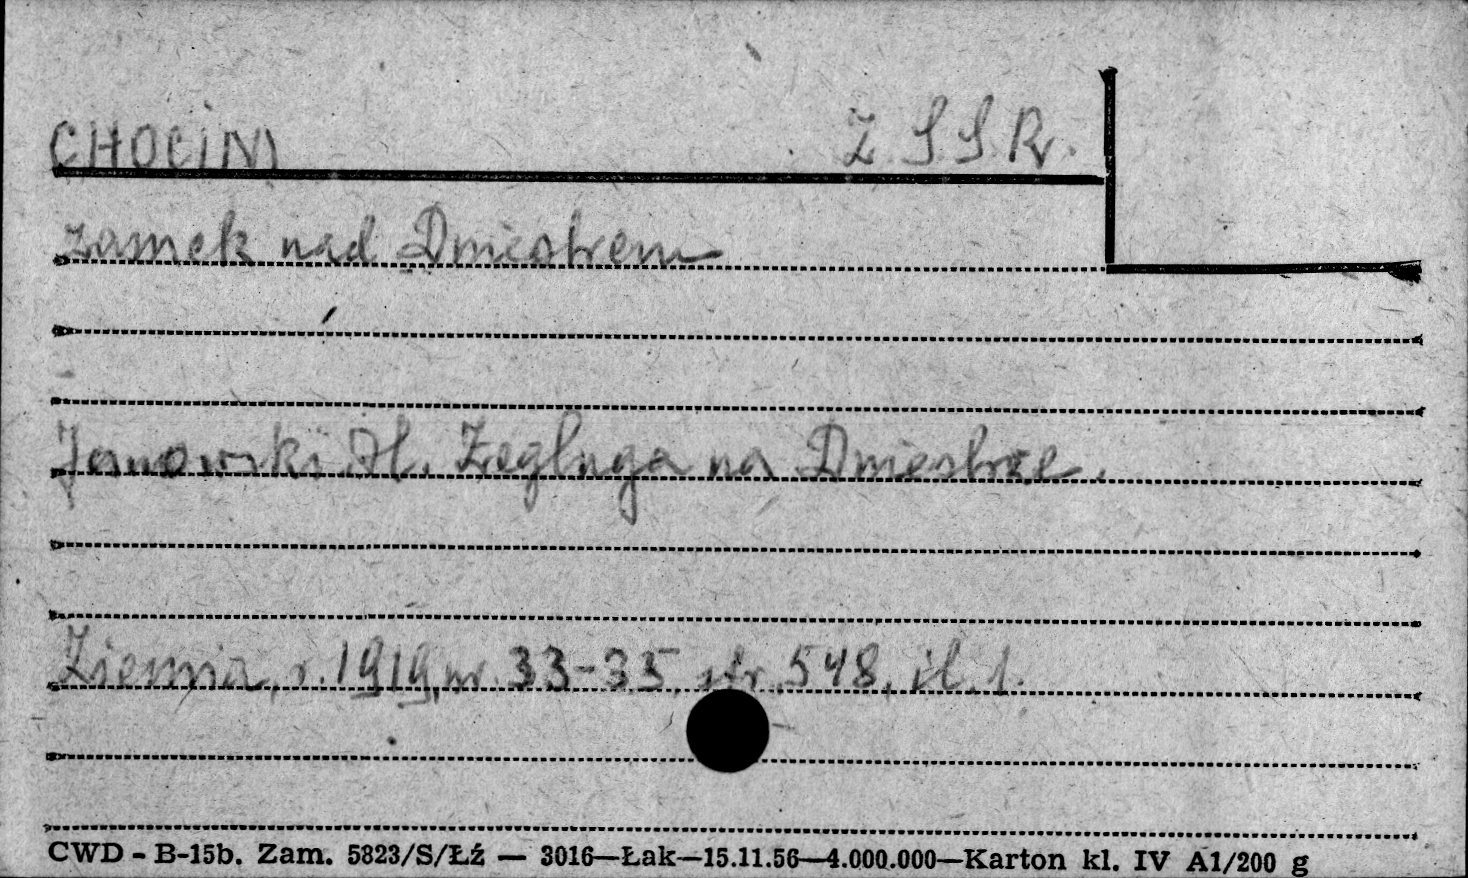 CHOCIM Z.S.S.R.
zamek nad Dniestrem
Janowski Al. Żegluga na Dniestrze.
Ziemia, r. 1919, nr. 33-35, str. 548, il. 1.
CWD - B-15b. Zam. 5823/S/Łź — 3016—Łak—15.11.56—4.000.000—Karton kl. IV A1/200 g